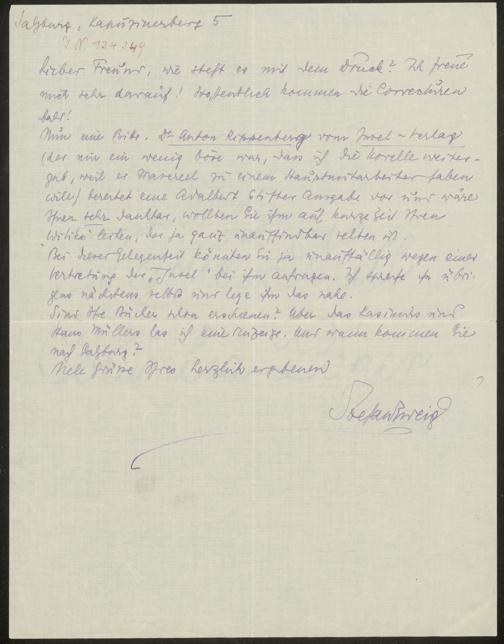 Salzburg, Kapuzinerberg 5
I.N. 124249
Lieber Freund, wie steht es mit dem Druck? Ich freue
mich sehr darauf! Hoffentlich kommen die Correcturen
bald!
Nun eine Bitte. Dr Anton Kippenberg vom Insel-Verlag
(der nur ein wenig böse war, dass ich die Novelle weiter-
gab, weil er Masereel zu einem Hauptmitarbeiter haben
will) bereitet eine Adalbert Stifter Ausgabe vor und wäre
Ihnen sehr dankbar, wollten Sie ihm auf kurze Zeit Ihren
Witiko leihen, der ja ganz unauffindbar selten ist.
Bei dieser Gelegenheit könnten Sie ja unauffällig wegen einer
Vertretung der „Insel“ bei ihm anfragen. Ich spreche ihn übri-
gens nächstens selbst und lege ihm das nahe.
Sind Ihre Bücher schon erschienen? Über das Casimirs und
Hans Müllers las ich eine Anzeige. Und wann kommen Sie
nach Salzburg?
Viele Grüsse Ihres herzlich ergebenen
Stefan Zweig